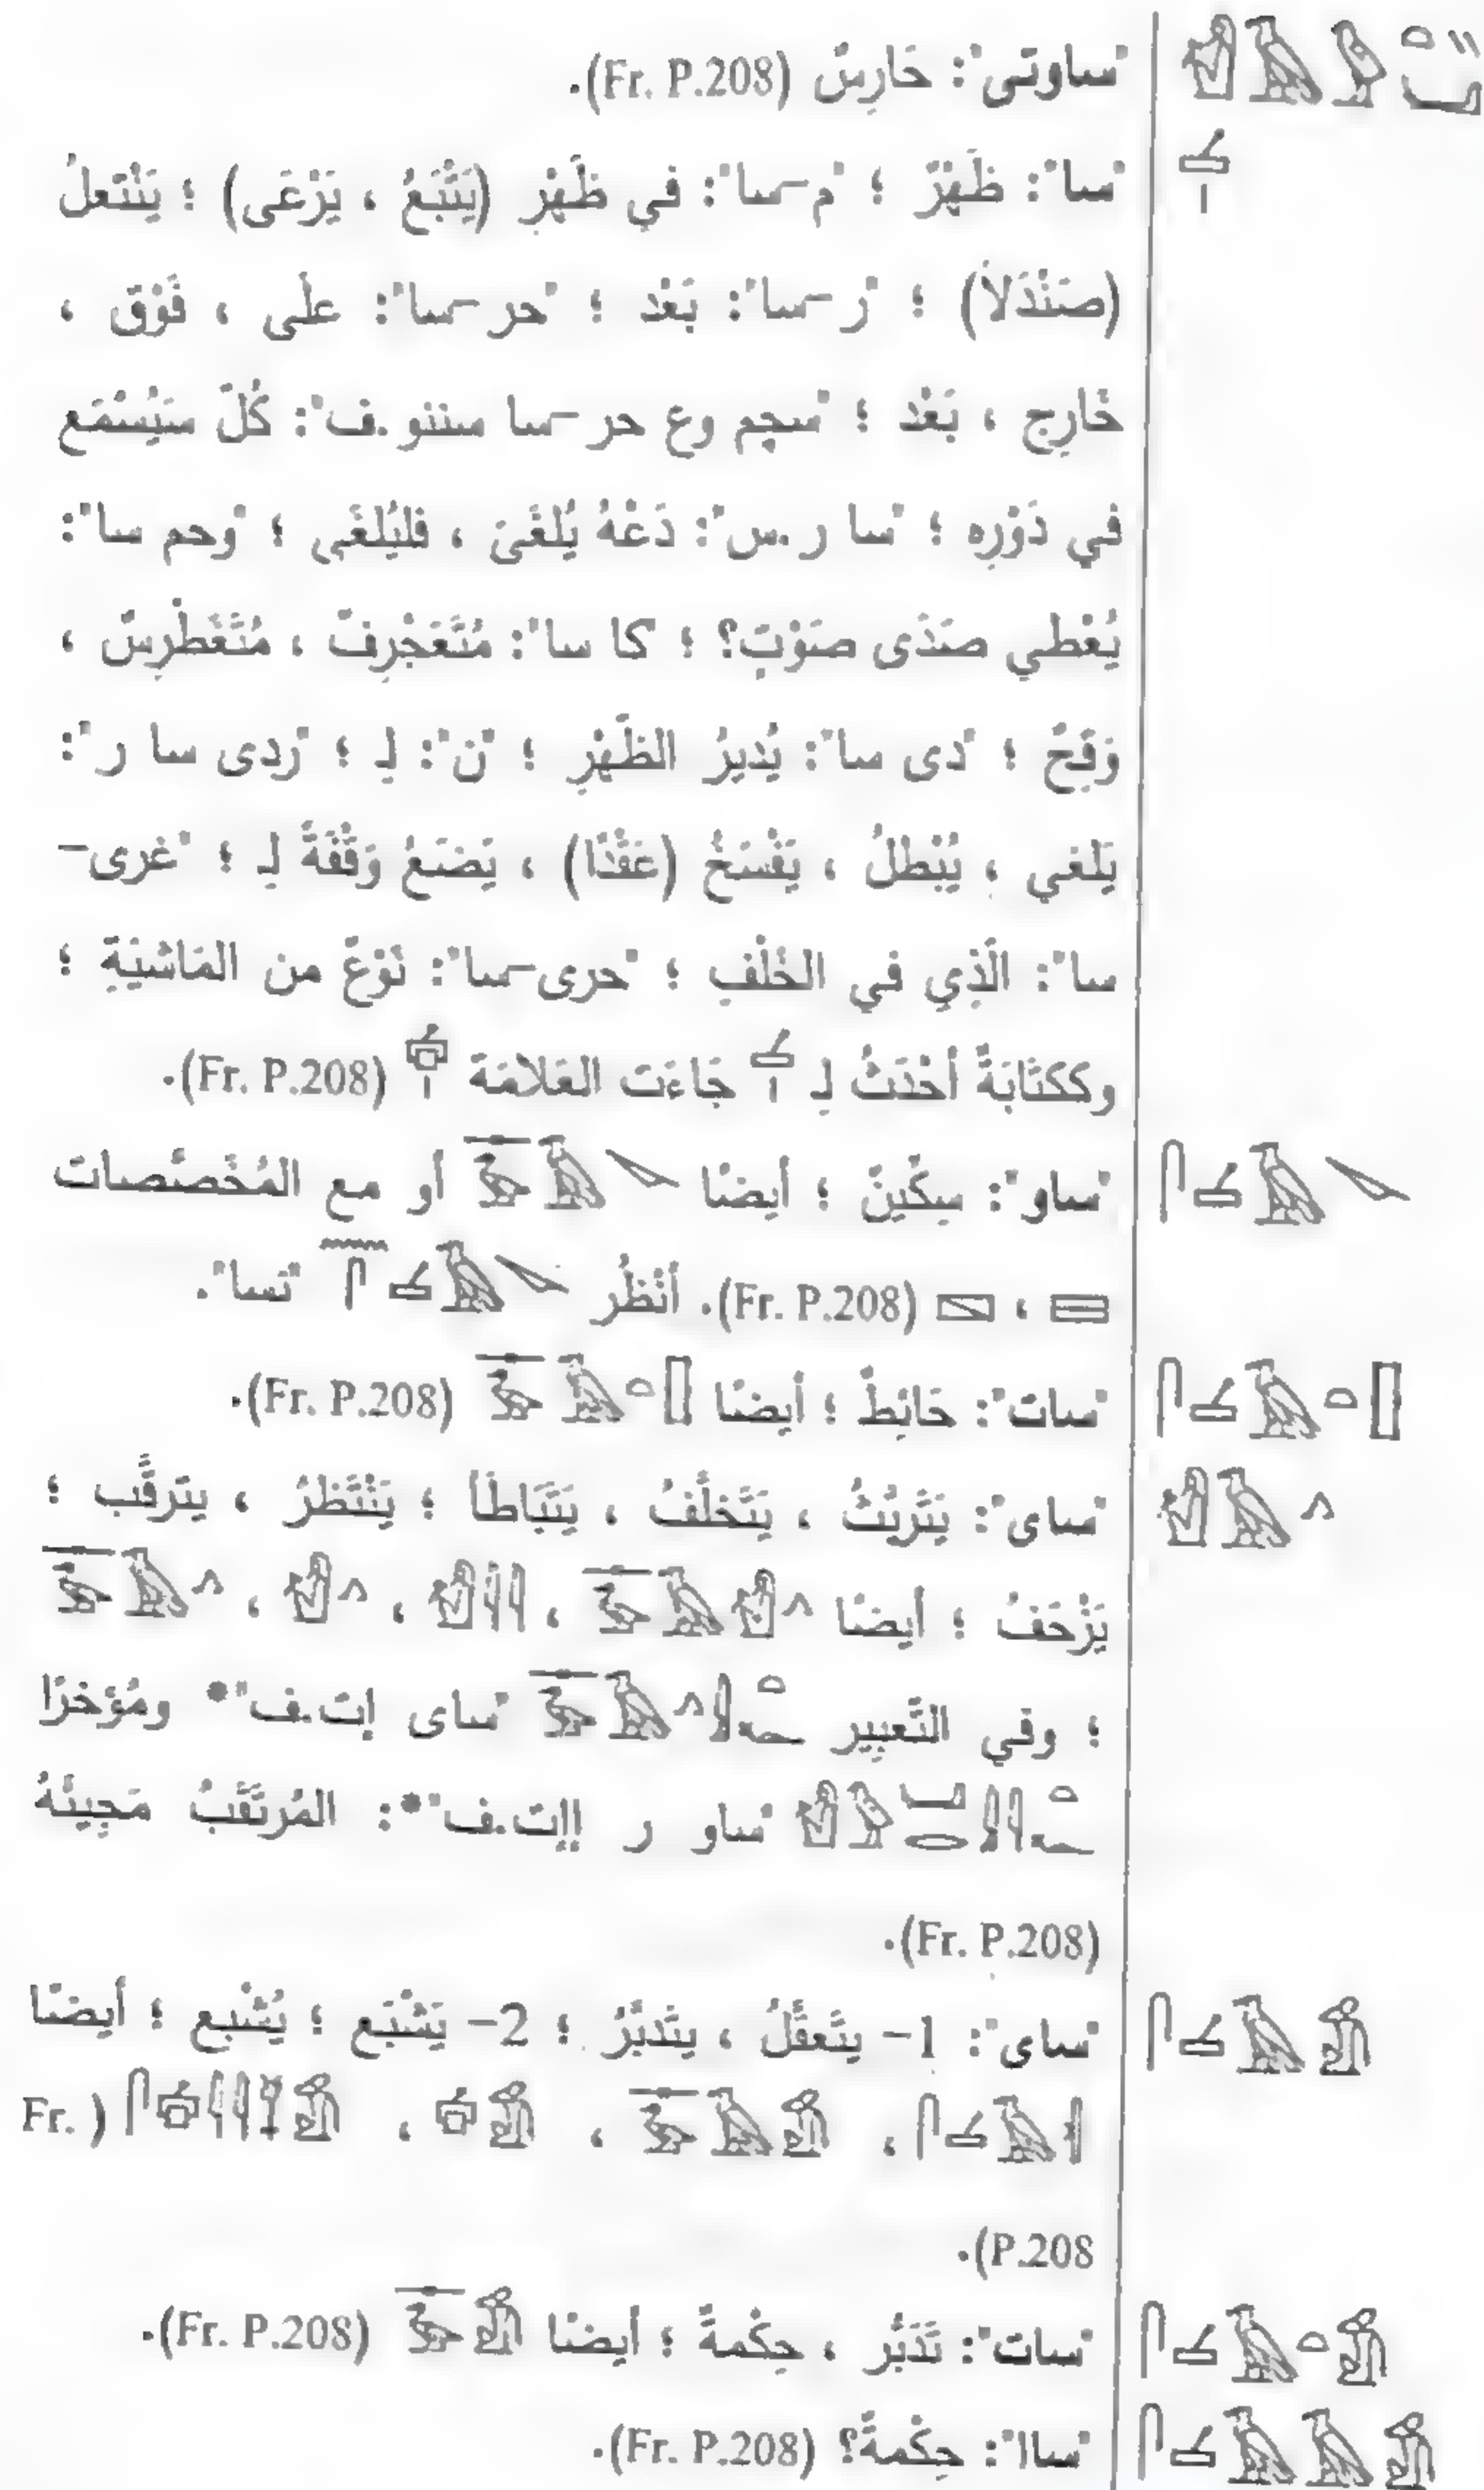 "ساوتى": حَارِسٌ (Fr. P.208).
"سا": ظَهْرٌ ؛ "م-سا": في ظَهْرِ (يَتْبَعُ ، يَرْعَى) ؛ يَنْتَعلُ
(صَنْدَلاً) ؛ "ر-سا": بَعْد ؛ "حر-سا": على ، فَوْق ،
خَارِج ، بَعْد ؛ "سچم وع حر-سا سننو.ف": كُلّ سَيُسْمَع
في دَوْرِه ؛ "سا ر.س": دَعْهُ يُلغَىَ ، فليُلغَى ؛ "وحم سا":
يُعْطي صَدَى صَوْتٍ؟ ؛ "كا سا": مُتَعَجْرِفٌ ، مُتَغَطْرِسٌ ،
وَقِحٌ ؛ "دى سا": يُدِيرُ الظَهْرِ ؛ "ن": لِ ؛ "ردى سا ر":
يَلغي ، يُبْطلُ ، يَفْسَخُ (عَقْدًا) ، يَضَعُ وَقْفَةً لِ ؛ "غرى-
سا": الَّذِي في الخَلْفِ ؛ "حرى-سا": نَوْعٌ من المَاشيَةِ ؛
وككتَابَةً أحْدَثُ لِ 𓐟 جَاءَت العَلامَة (Fr. P.208).
"ساو": سِكِّينٌ ؛ أيضًا أو مع المُخَصَّصات
، (Fr. P.208). أنْظُر "نسا".
"سات": حَائِطٌ ؛ أيضًا (Fr. P.208).
"ساى": يَتَريَّثُ ، يَتَخلَّفُ ، يَتَبَاطَأ ؛ يَنْتَظرُ ، يترقَّب ؛
يَزْحَفُ ؛ أيضًا ، ، ،
؛ وفي التَّعبِير "ساى إت.ف"* ومُؤخرًا
"ساو ر إإت.ف"*: المُرتَقَبُ مَجِيئَهُ
(Fr. P.208).
"ساى": 1- يتَعقَّلُ ، يتَدبَّرُ ؛ 2- يَشْبَع ؛ يُشْبِع ؛ أيضًا
، ، ، (Fr.
P.208).
"سات": تَدَبُّر ، حِكْمةً ؛ أيضًا (Fr. P.208).
"ساا": حِكْمةً؟ (Fr. P.208).